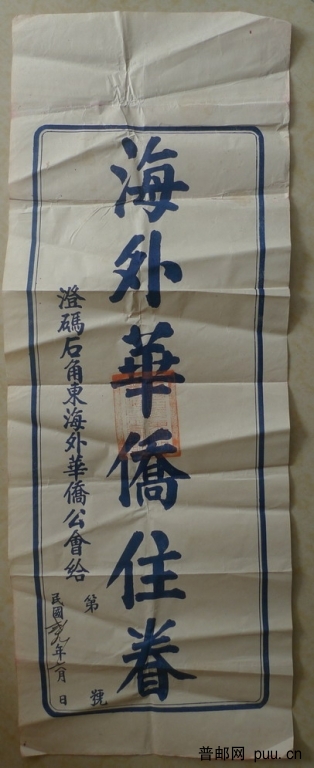 海外華僑住眷
澄碼石角東海外華僑公會給
第 號
民國 年 月 日
普邮网 puu.cn